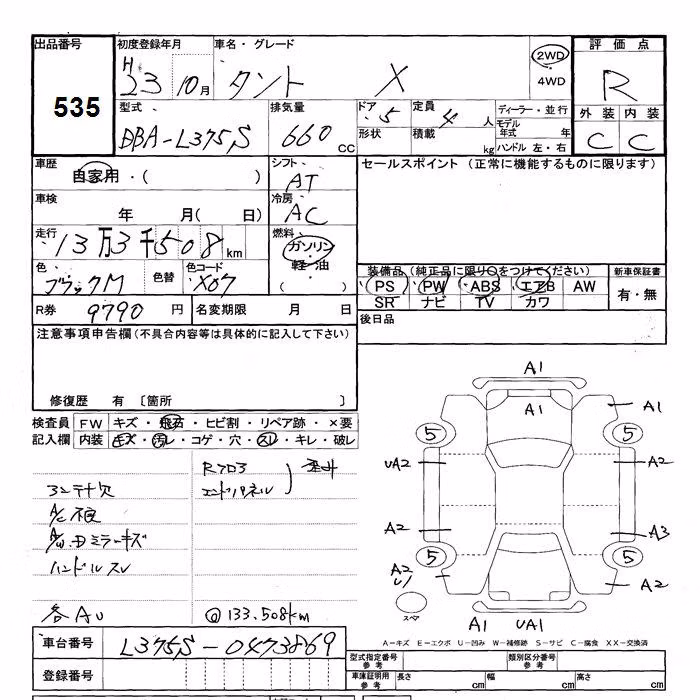 出品番号 535
初度登録年月 H 23 10月
車名・グレード タント X
2WD
4WD
評価点 R
外装 内装
C C
型式 DBA-L375S
排気量 660 CC
ドア 5
定員 4 人
形状 積載 kg
ディーラー・並行
モデル年式 年
ハンドル 左・右
車歴 自家用・( )
シフト AT
セールスポイント (正常に機能するものに限ります)
車検 年 月( 日)
冷房 AC
走行 13万3千508km
燃料 ガソリン・軽油 ( )
色 ブラックM
色替
色コード X07
装備品 (純正品に限り○をつけてください)
新車保証書
PS PW ABS エアB AW
SR ナビ TV カワ
有・無
R券 9790 円
名変期限 月 日
後日品
注意事項申告欄(不具合内容等は具体的に記入して下さい)
修復歴 有 〔箇所 〕
検査員 FW キズ・飛石・ヒビ割・リペア跡・×要
記入欄 内装 キズ・汚レ・コゲ・穴・スレ・キレ・破レ
エンドパネル
A/C不良
ハンドルスレ
各AU
@133.508km
A1
A1
A1
5 5
UA2 A2
A2 A3
5 5
A2 U1
A2
スペア
A1 UA1
A-キズ E-エクボ U-凹み W-補修跡 S-サビ C-腐食 XX-交換済
車台番号 L375S-0473869
型式指定番号 参考
類別区分番号 参考
登録番号
車庫証明用 参考 長さ cm 幅 cm 高さ cm